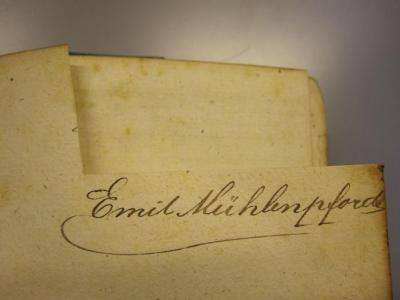 Emil Mühlenpfordt